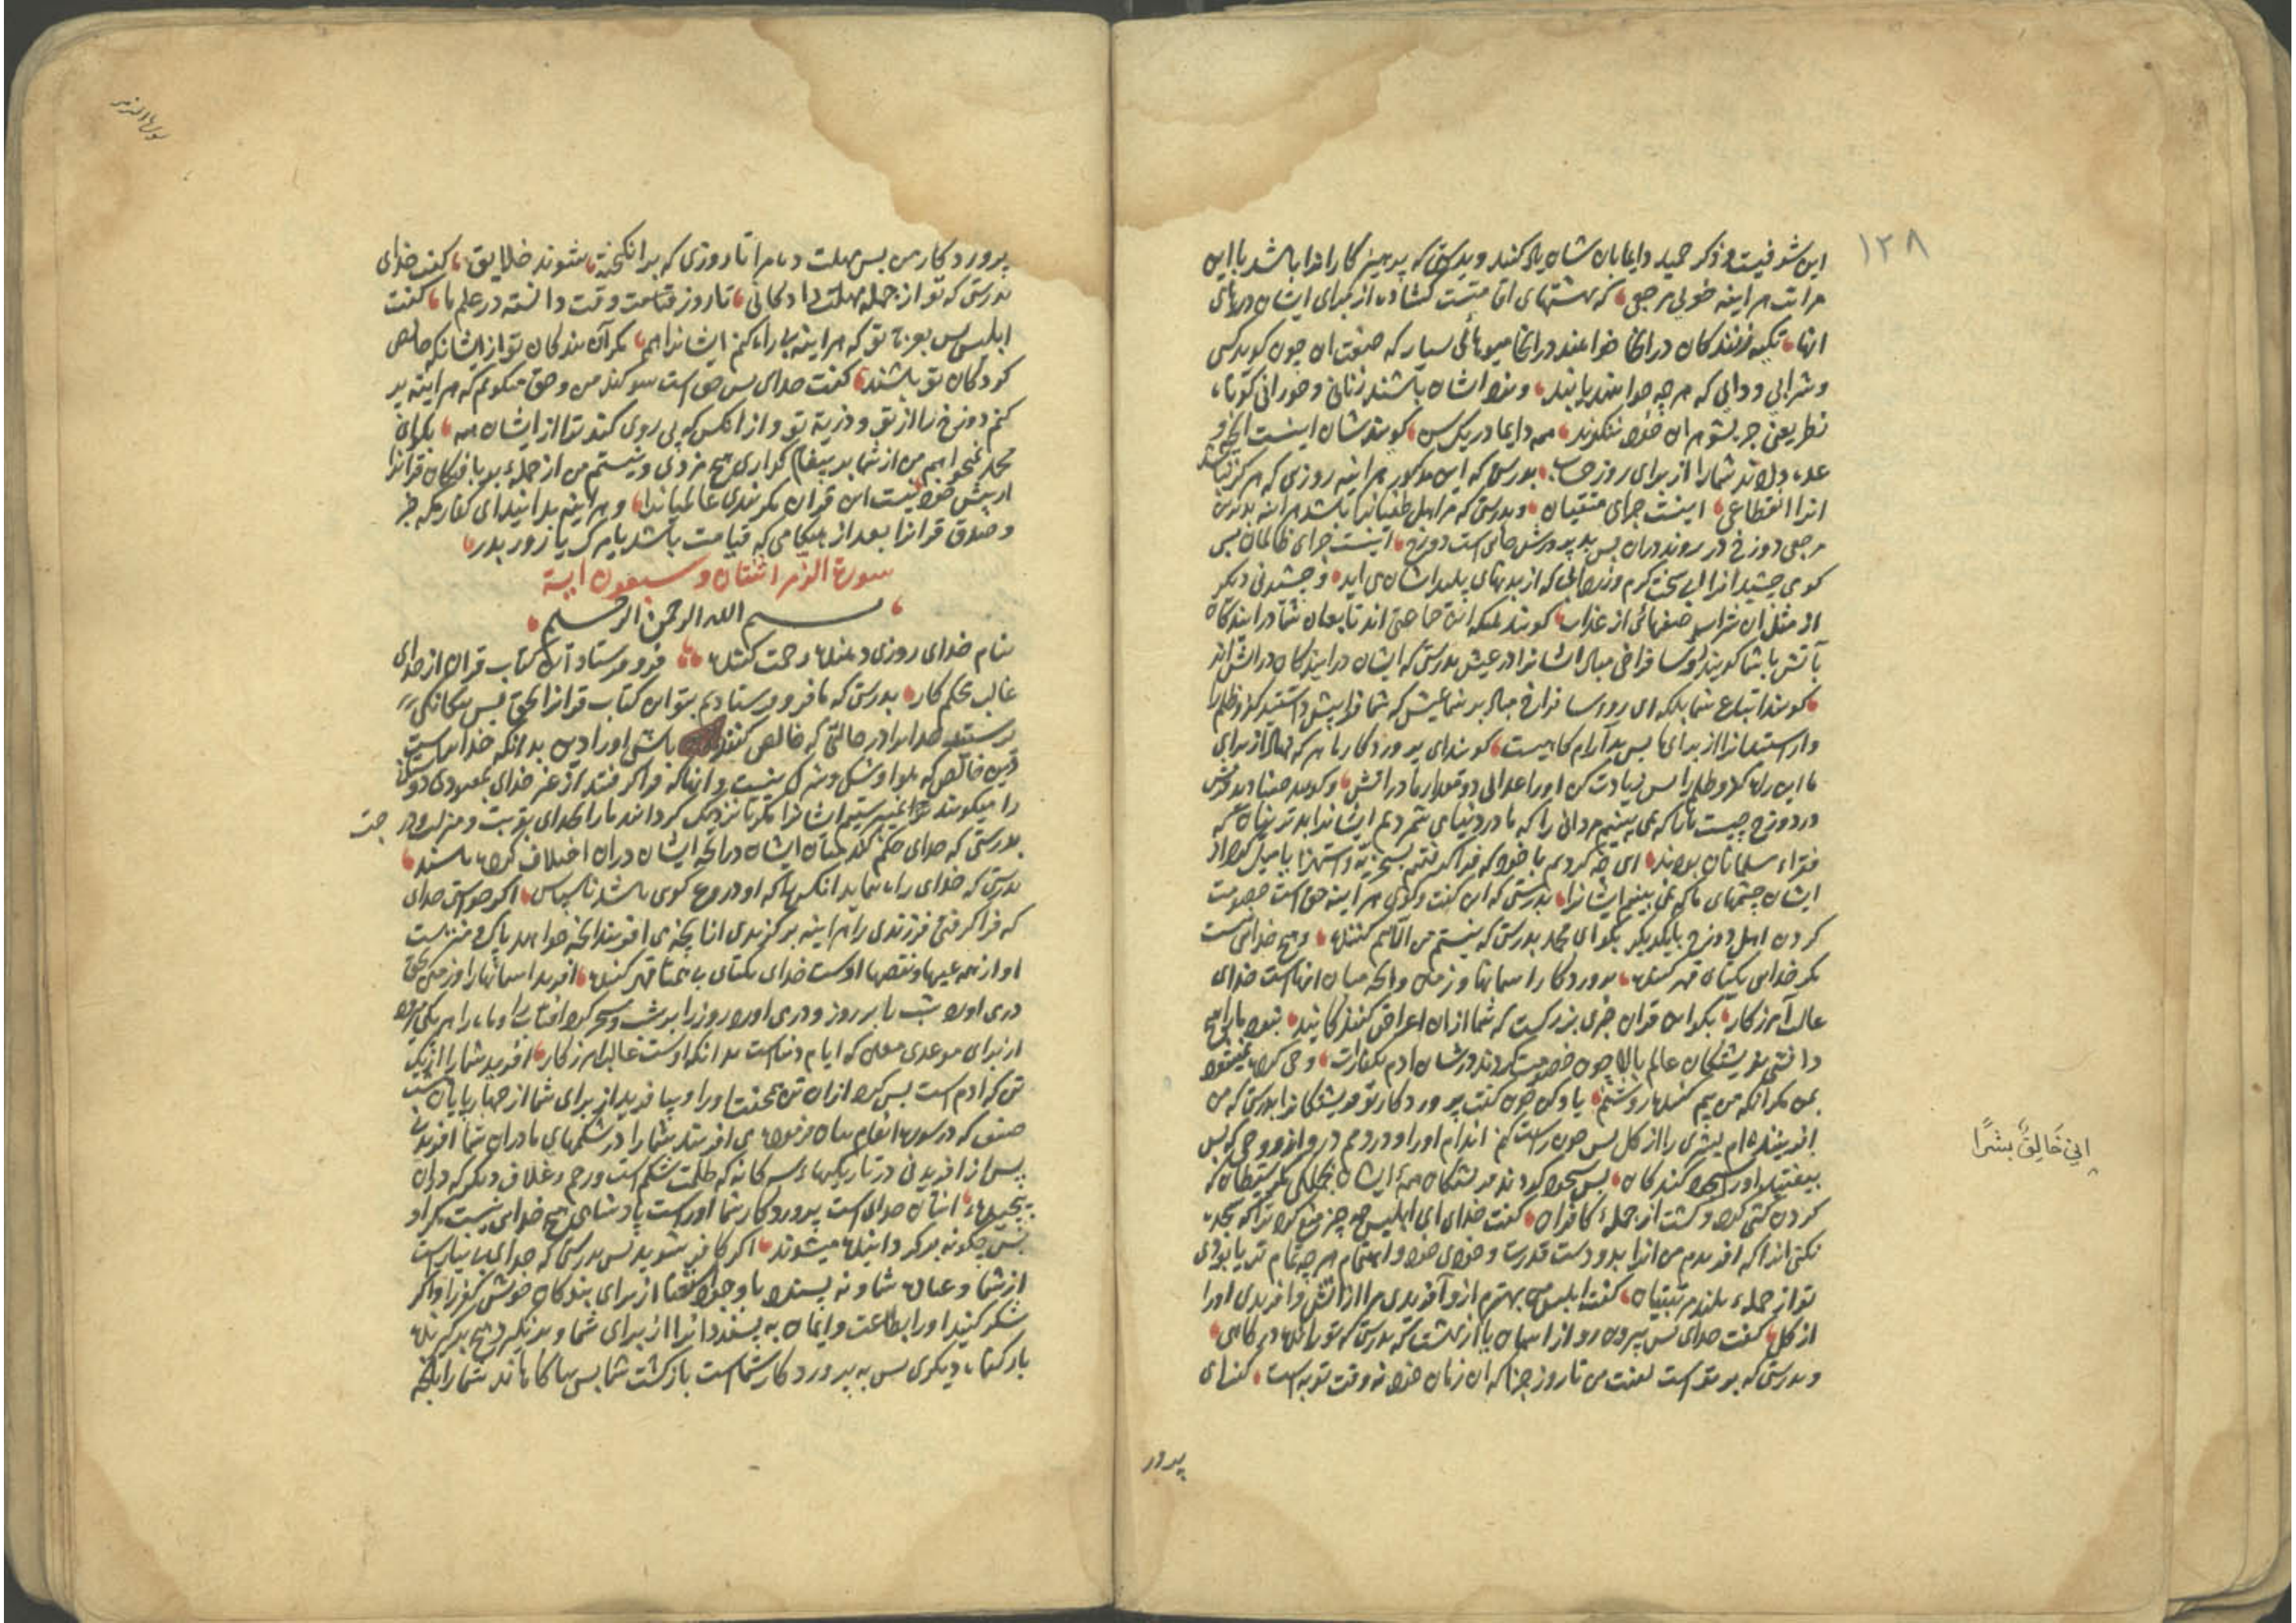 ۱۳۸
این شرفیست و ذکر حمید دایما بان شان یاد کنند و بدرستی که پرهیز کارانرا باشد با این
مراتب هر اینه خوبی مرجع که بهشتهای اقامتست کشاده از برای ایشان درهای
انها تکیه زنندکان در انجا خواهند در انجا میوهائی بسیار که صنعت ان چون کوید کس
و شرابی که هر چه خواهند یابند و نزد ایشان باشند زنانی و حورانی کوتاه
نظر یعنی جز بشوهران خود ننکرند همه دایما در یک سن کویند شان اینست انچه
وعده داده اند شما را از برای روز حساب بدرستی که این مذکور هر اینه روزی که هرکز نباشد
انرا انقطاعی اینست جزای متقیان و بدرستی که مر اهل طغیانرا باشد هر اینه بدترین
مرجعی دوزخ در روند دران پس بد پرورش جائی است دوزخ اینست جزای ظالمان پس
کوی چشید انرا ابی سخت کرم و زردابی که از بدنهای پلید ایشان می اید و چشیدنی دیکر
از مثل ان شراب صنفهائی از عذاب کویند ملیکه این جماعتی اند تابعان شما در ایندکان
باتش با شما کویند رؤسا فراخی مباد ایشانرا در عیش بدرستی که ایشان در ایندکان در اتش اند
کویند اتباع بلکه ای رؤسا فراخ مباد بر شما عیش که شما فرا پیش داشتید کفر و ظلم را
کویند ای پرورد کار ما هر که نهاد از برای
ما این راه کفر و ظلم را پس زیادت کن او را عذابی دو مقدار ما در اتش و کویند صنادید قریش
در دوزخ چیست ما را که نمی بینیم مردانی را که ما در دنیا می شمردیم ایشانرا بدترینان که
فقراء مسلمانان بودند ای چه کردیم ما خود که فرا کرفتیم بسخریه و استهزا یا میل کرد از
ایشان چشمهای ما که نمی بینیم ایشانرا بدرستی که این کفت و کوی هر اینه حق است خصومت
کردن اهل دوزخ با یکدیکر بکو ای محمد بدرستی که نیستم من الا بیم کننده و هیچ خدائی نیست
مکر خدای یکتای قهر کننده پرورد کار اسمانها و زمین و انچه میان انهاست خدای
غالب آمرزکار بکو این قران خبری بزرکست که شما ازان اعراض کنندکانید نبود مرا هیچ
دانشی بفریشتکان عالم بالا چون خصومت کردند در شان ادم و وحی کرده نمیشود
بمن مکر انکه من بیم کننده روشنم یاد کن چون کفت پرورد کار تو فریشتکانرا بدرستی که من
افریننده ام بشری را از کل پس چون راست کنم اندام او را و در دمم درو از روحی که پس
بیفتید او را سجود کنندکان پس سجود کردند فریشتکان همه ایشان بجملکی مکر شیطان که
کردن کشی کرد و کشت از جمله کافران کفت خدای ای ابلیس چه چیز منع کرد ترا که سجده
نکنی انرا که افریدم من انرا بدو دست قدرت
تو از جمله بلند مرتبتیان کفت ابلیس من بهترم ازو آفریدی مرا از اتش و افریدی او را
از کل کفت خدای پس بیرون رو از اسمان یا از بهشت که بدرستی که تو رانده درکاهی
و بدرستی که بر تو است لعنت من تا روز جزا که ان زمان خود نه وقت توبه است کفت ای
إِنِّي خَالِقٌ بَشَرًا
پرور
سورة الزمر
پرورد کار من پس مهلت ده مرا تا روزی که برانکیخته شوند خلایق کفت خدای
بدرستی که تو از جمله مهلت دادکانی تا روز قیامت وقت دانسته در علم ما کفت
ابلیس پس بعزت تو که هر اینه بی راه کنم ایشانرا همه مکر آن بندکان تو از ایشان که خالص
کردکان تو باشند کفت خدای پس حق است سوکند من و حق میکویم که هر اینه پر
کنم دوزخ را از تو و ذریة تو و از انکس که پی روی کند ترا از ایشان همه بکو ای
محمد نمیخواهم من از شما بر پیغام کزاری هیچ مزدی و نیستم من از جمله بر بافندکان قرانرا
از پیش خود نیست این قران مکر پندی عالمیانرا و هر اینه بدانید ای کفار مکه خبر
و صدق قرانرا بعد از هنکامی که قیامت باشد یا مرک یا روز بدر
سورة الزمر اثنتان و سبعون اية
بسم الله الرحمن الرحيم
بنام خدای روزی دهنده رحمت کننده فرو فرستاد آن کتاب قران از خدای
غالب محکم کار بدرستی که ما فرو فرستادیم بتو این کتاب قرانرا بحق پس بیکانکی
پرستند خدا را در حالتی که خالص کننده باشی او را دین بدانکه خدا راست
دین خالص که هوا و شک و شرک نیست و انها که فرا کرفتند از غیر خدای بمعبودی دوستان
را میکویند نمی پرستیم ایشانرا مکر تا نزدیک کردانند ما را بخدای بقربت و منزلت
بدرستی که خدای حکم کند میان ایشان در انچه ایشان دران اختلاف کرده باشند
بدرستی که خدای راه ننماید انکس را که او دروغ کوی باشد ناسپاس اکر خواستی خدای
که فرا کرفتی فرزندی را هر اینه برکزیدی از انچه می افریند انچه خواهد پاک و منزه است
او از همه عیبها و نقصها اوست خدای یکتای بی همتا قهر کننده افرید اسمانها را و زمین بحق
در می اورد شب را بر روز و در می اورد روز را بر شب و مسخر کرد افتاب را و ماه را هر یکی میرود
از برای موعدی معین که ایام دنیاست بدانکه اوست غالب امرزکار افرید شما را از یک
تن که ادم است پس کرد ازان تن جفت او را و بیافرید از برای شما از چهارپایان هشت
صنف که در سوره انعام بیان فرموده می افریند شما را در شکمهای مادران شما افریدنی
پس از افریدنی در تاریکیها سه کانه که ظلمت شکم است و رحم و غلاف دیکر که دران
پیچیده انتان خدای است پرورد کار شما او راست پادشاهی هیچ خدای نیست مکر او
پس چکونه بر کردانیده میشوند اکر کافر شوید پس بدرستی که خدای بی نیاز است
از شما و عبادت شما و نه پسندد با وجود از برای بندکان خویش کفر را و اکر
شکر کنید او را بطاعت و ایمان به پسندد انرا از برای شما و بر نکیرد هیچ بر کیرنده
بار کناه دیکری پس به پرورد کار شماست بازکشت شما پس بیاکاهاند شما را بانچه